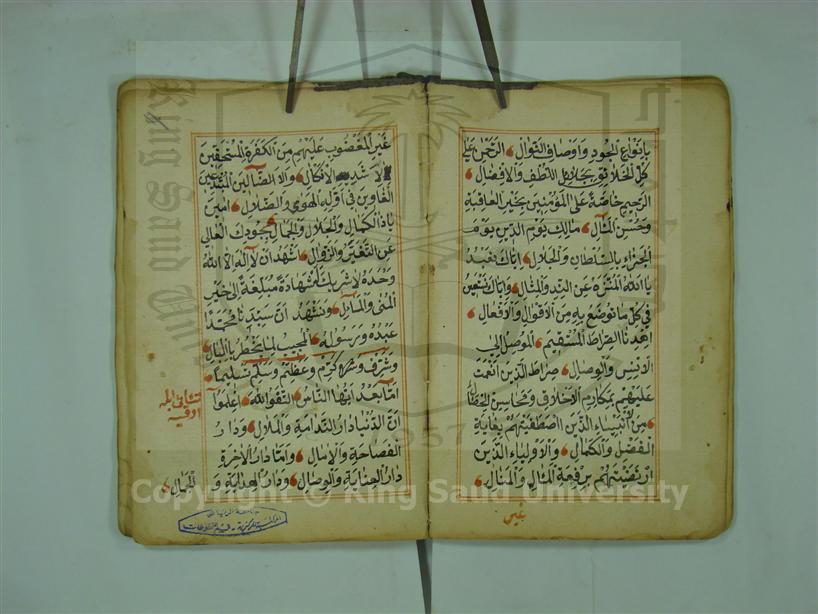 بانواع الجود واوصاف النوال الرحمن على
كل الخلائق بجلائل اللطف والافضال
الرحيم خاصة على المؤمنين بخير العاقبة
وحسن المآل مالك يوم الدين يوم
الجزاء بالسلطان والجلال اياك نعبد
يا الله المتنزه عن الند والمثال واياك نستعين
في كل ما نوضع به من الاقوال والافعال
اهدنا الصراط المستقيم الموصل الى
الانس والوصال صراط الذين انعمت
عليهم بمكارم الاخلاق ومحاسن
من الانبياء الذين اصطفيتهم بغاية
الفضل والكمال والاولياء الذين
ارتضيتهم برفعة الحال والمنال
غير
غير المغضوب عليهم من الكفرة المستحقين
لاشد الانكال ولا الضالين
الغاوين في اودية الهوى والضلال امين
ياذا الكمال والجلال والجمال بجودك العالي
عن التغير والزوال اشهد ان لا اله الا الله
وحده لا شريك له شهادة مبلغة الى خير
المنى والمآرب ونشهد ان سيدنا محمدا
عبده ورسوله المجيب لما يخطر بالبال
وشرف وكرم وعظم وسلم تسليما
اما بعد ايها الناس اتقوا الله اعلموا
ان الدنيا دار الندامة والملال ودار
الفصاحة والامال واما دار الاخرة
دار العناية والوصال ودار الهداية و
الجمال
Copyright © King Saud University
King Saud University
1957